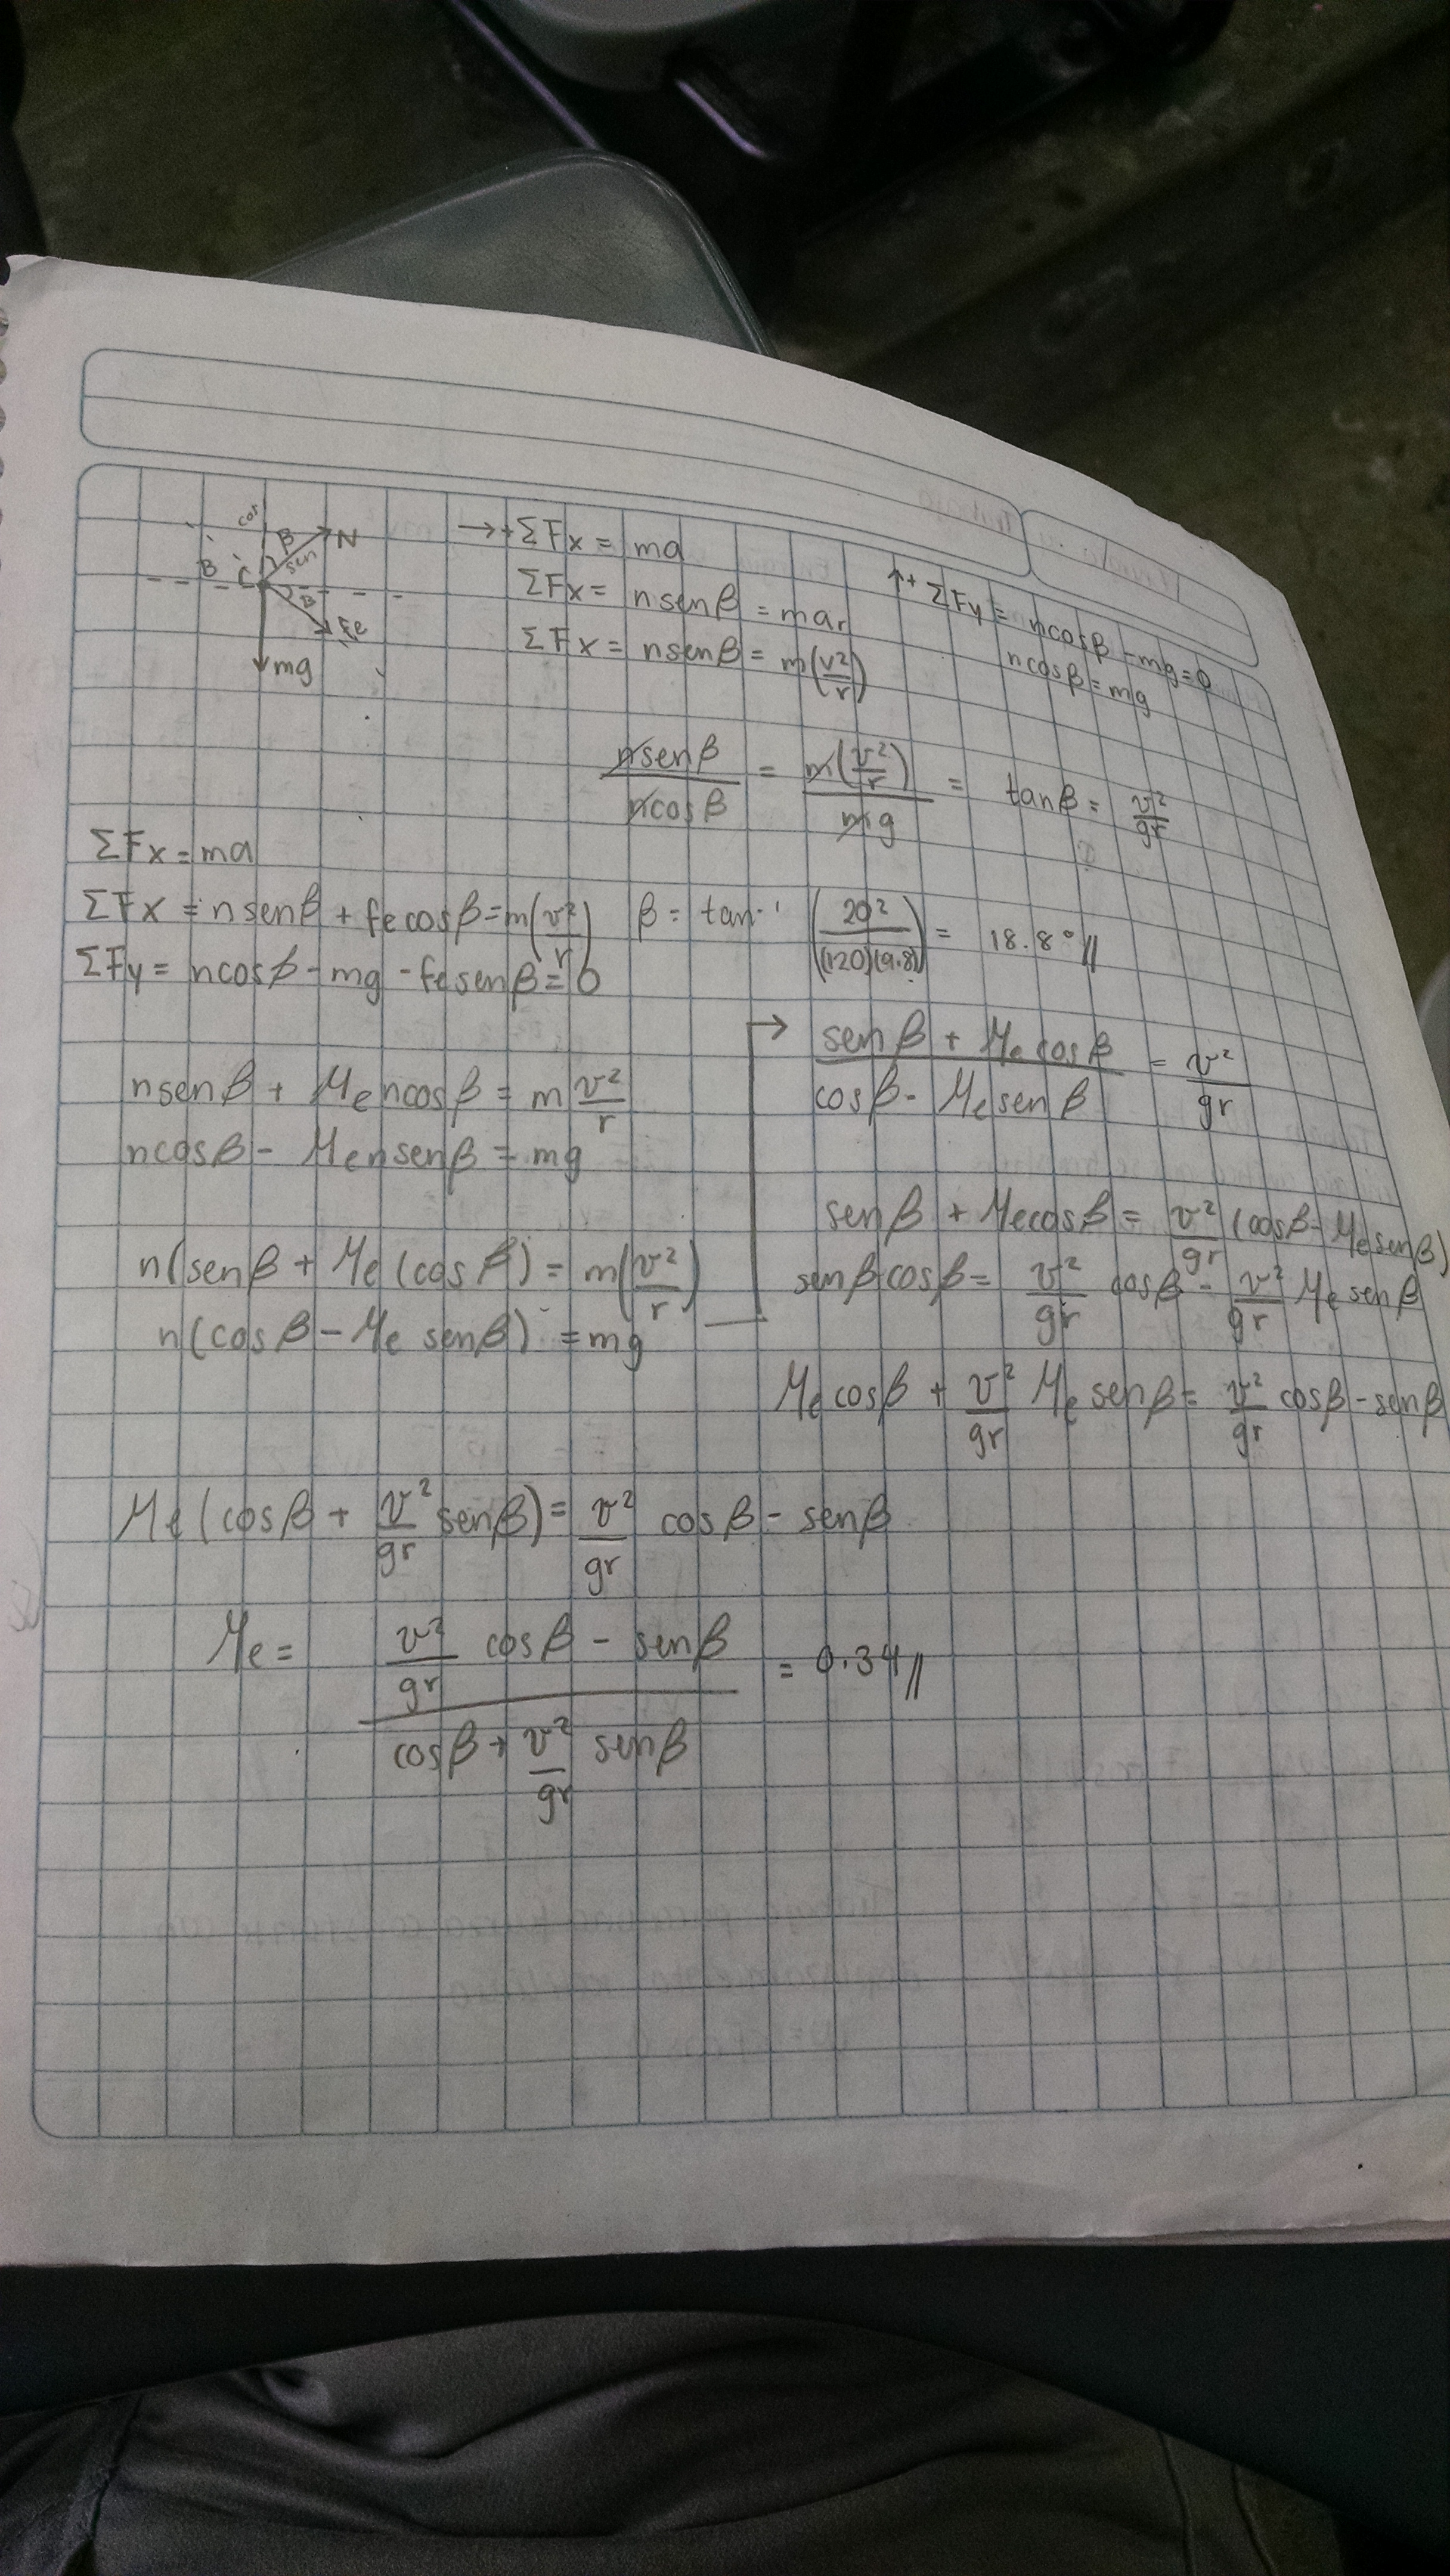 cos β N
sen
B C
B Fe
mg
→+ ΣFx = ma
ΣFx = n sen β = mar
ΣFx = n sen β = m(v²/r)
↑+ ΣFy = n cos β - mg = 0
n cos β = mg
n sen β / n cos β = m(v²/r) / mg = tan β = v²/gr
ΣFx = ma
ΣFx = n sen β + fe cos β = m(v²/r)
ΣFy = n cos β - mg - fe sen β = 0
β = tan⁻¹ (20² / (120)(9.8)) = 18.8° //
n sen β + Me n cos β = m v²/r
n cos β - Me n sen β = mg
n(sen β + Me (cos β) = m(v²/r)
n(cos β - Me sen β) = mg
→ sen β + Me cos β / cos β - Me sen β = v²/gr
sen β + Me cos β = v²/gr (cos β - Me sen β)
sen β cos β = v²/gr cos β - v²/gr Me sen β
Me cos β + v²/gr Me sen β = v²/gr cos β - sen β
Me (cos β + v²/gr sen β) = v²/gr cos β - sen β
Me = v²/gr cos β - sen β / cos β + v²/gr sen β = 0.34 //